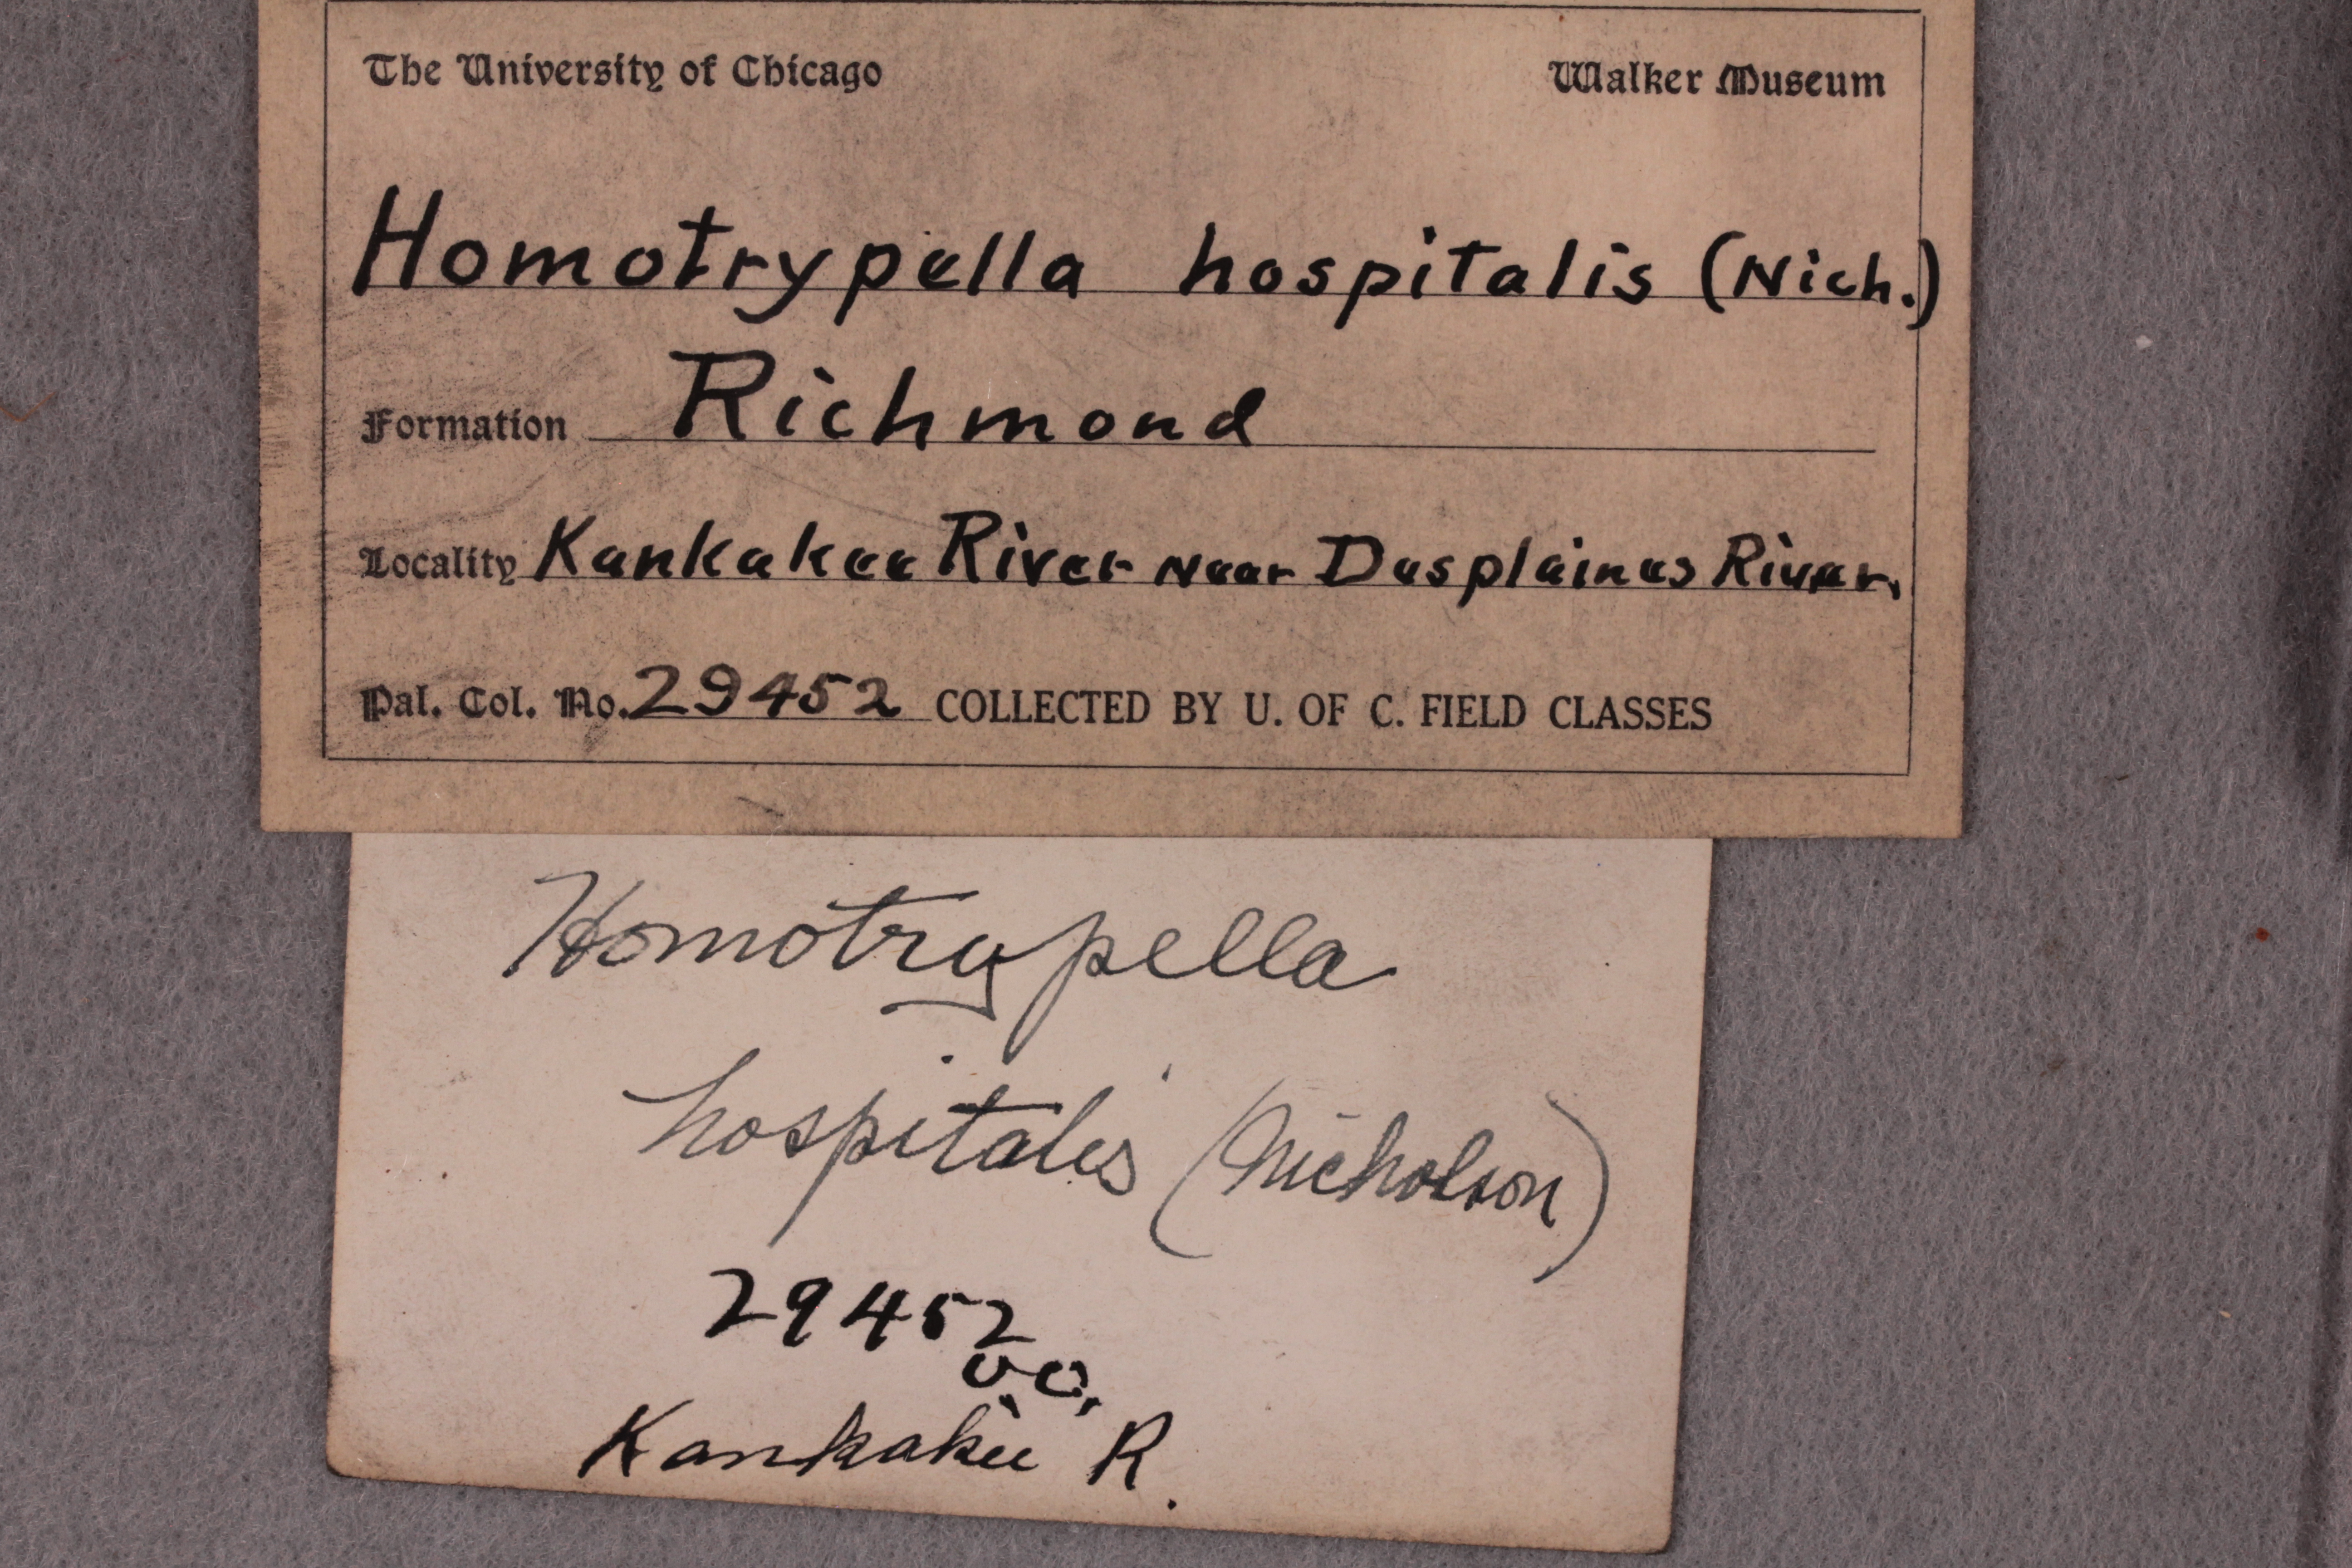 The University of Chicago Walker Museum
Homotrypella hospitalis (Nich.)
Formation Richmond
Locality Kankakee River near Desplaines River.
Pal. Col. No. 29452 COLLECTED BY U. OF C. FIELD CLASSES
Homotrypella
hospitalis (Nicholson)
29452
U.C.
Kankakee R.